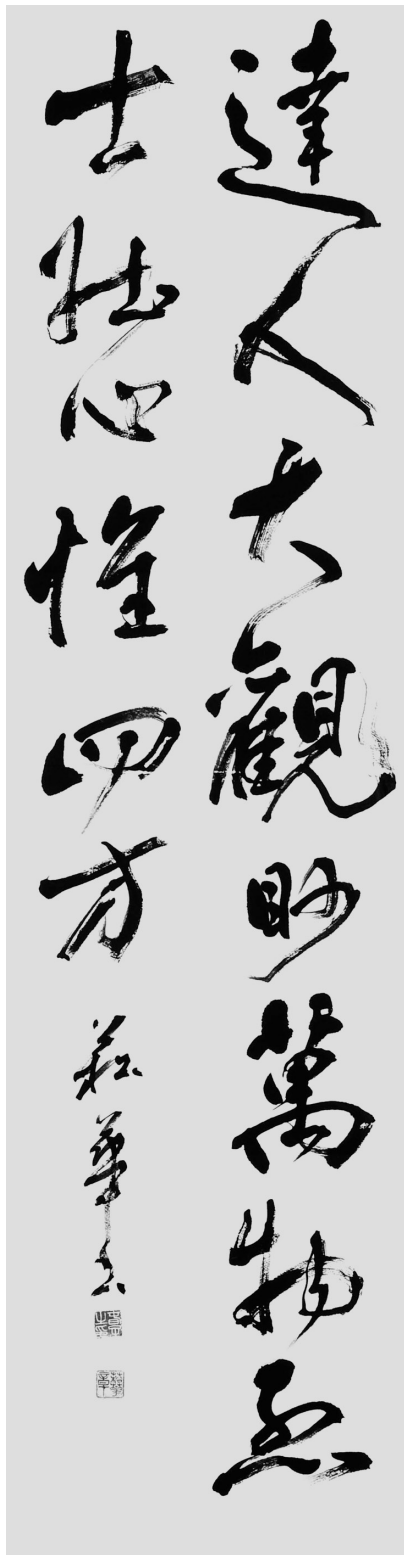 達人大觀眇萬物烈
士壯心惟四方
菘華書